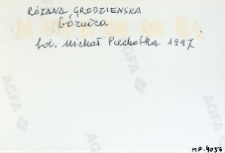 RÓŻANA GRODZIEŃSKA
bóżnica
fot. Michał Piechotka 1997
AGFA
M.P.-4056